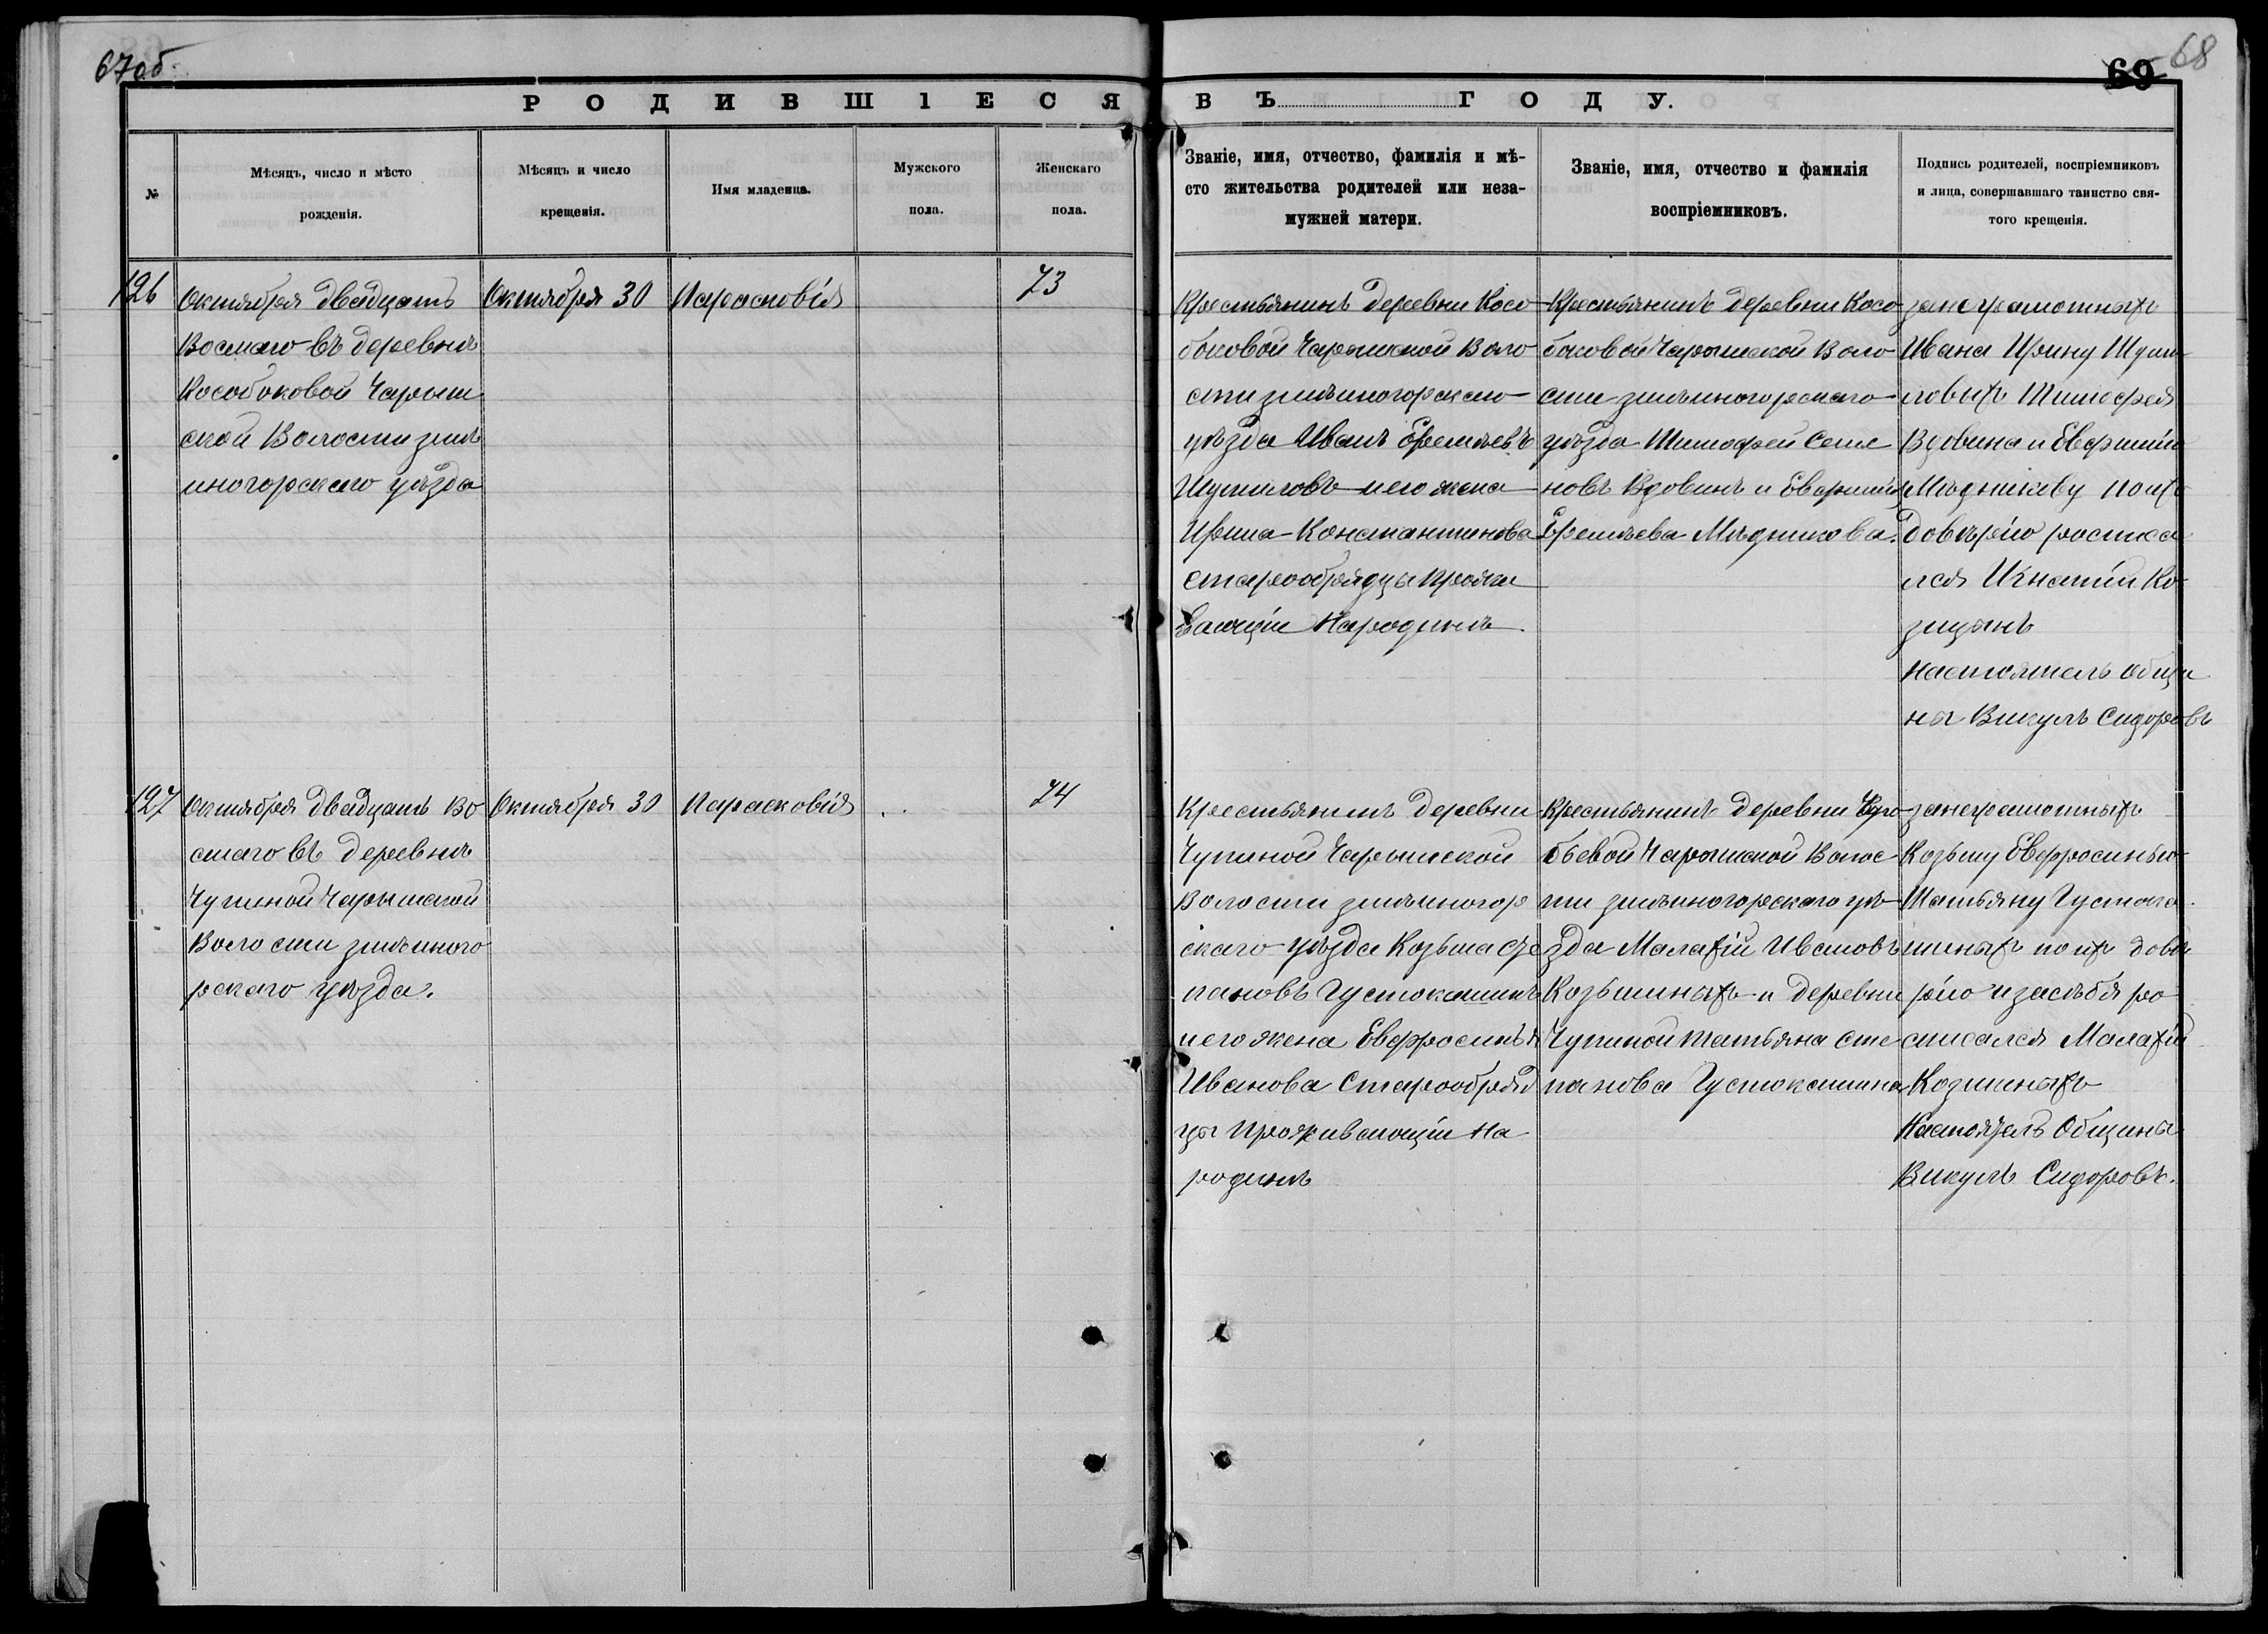 67об.
69 68
РОДИВШІЕСЯ
ВЪ ГОДУ.
№
Мѣсяцъ, число и мѣсто
рожденія.
Мѣсяцъ и число
крещенія.
Имя младенца.
Мужского
пола.
Женскаго
пола.
Званіе, имя, отчество, фамилія и мѣ-
сто жительства родителей или неза-
мужней матери.
Званіе, имя, отчество и фамилія
воспріемниковъ.
Подпись родителей, воспріемниковъ
и лица, совершавшаго таинство свя-
того крещенія.
126
Октября двадцать
Восмаго въ деревнѣ
Кособоковой Чарыш
ской Волости змѣ
иногорскаго уѣзда
Октября 30
Парасковія
73
Крестьянинъ деревни Косо
боковой Чарышской Воло
сти змѣиногорскаго
уѣзда Иванъ Ефремъевъ
Шумиловъ и его жена
Ирина Константинова
старообрядцы прожи
вающіи Народинѣ.
Крестьянинъ деревни Косо
боковой Чарышской Воло
сти змѣиногорскаго
уѣзда Тимофей Семе
новъ Вдовинъ и Евфимія
Ефремъева Мѣдникова.
занеграмотныхъ
Ивана Ирину Шуми
ловыхъ Тимофея
Вдовина и Евфимію
Мѣдникову поихъ
довѣрію росписа
лся Игнатій Ко
зицынъ
Настоятель общи
ны Викулъ Сидоровъ
127
Октября двадцать во
смаго въ деревнѣ
Чупиной Чарышской
Волости змѣиного
рскаго уѣзда.
Октября 30
Парасковія
74
Крестьянинъ деревни
Чупиной Чарышской
Волости змѣиногор
скаго уѣзда Козьма Сте
пановъ Густокашинъ
и его жена Евфросинья
Иванова Старообряд
цы проживающіи На
родинѣ
Крестьянинъ деревни
бьевой Чарышской Волос
ти змѣиногорскаго уѣ
зда Малахій Ивановъ
Козьминыхъ и деревни
Чупиной Татьяна Сте
панова Густокашина
занеграмотныхъ
Козьму Евфросинью
Татьяну Густока
шиныхъ по ихъ довѣ
рію изасѣбя ро
списался Малахій
Козминыхъ
Настоятель Общины
Викулъ Сидоровъ.